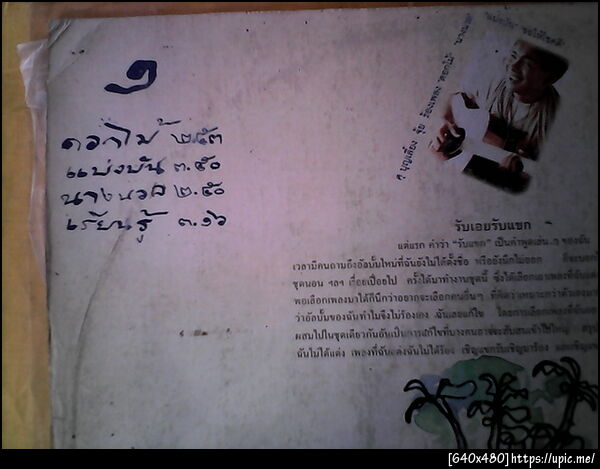 ๑
ดอกไม้ ๒.๕๓
แบ่งปัน ๓.๕๐
นางนวล ๒.๕๐
เรียนรู้ ๓.๑๖
ๆ บุญเลี้ยง จุ้ย ร้องเพลง "ดอกไม้" "นางนวล"
"แบ่งปัน" ขอให้โชคดี
รับเอยรับแขก
แต่แรก คำว่า "รับแขก" เป็นคำพูดเล่น ๆ ของฉัน
เวลามีคนถามถึงอัลบั้มใหม่ที่ฉันยังไม่ได้ตั้งชื่อ หรือยังนึกไม่ออก
ชุดนอน ฯลฯ เรื่อยเปื่อยไป ครั้งได้มาทำงานชุดนี้ ซึ่งได้เลือกเอาเพลงที่ฉัน
พอเลือกเพลงมาได้ก็นึกว่าอยากจะเลือกคนอื่นๆ ที่คิดว่าเหมาะกว่าตัวเอง
ว่าอัลบั้มของฉันทำไมจึงไม่ร้องเอง ฉันเลยแก้ไข โดยการเลือกเพลงที่ฉัน
ผสมไปในชุดเดียวกันอันเป็นการแก้ไขที่บางคนอาจจะสับสนเข้าไปใหญ่
ฉันไม่ได้แต่ง เพลงที่ฉันแต่งฉันไม่ได้ร้อง เชิญแขกรับเชิญมาร้อง
[640x480]https://upic.me/